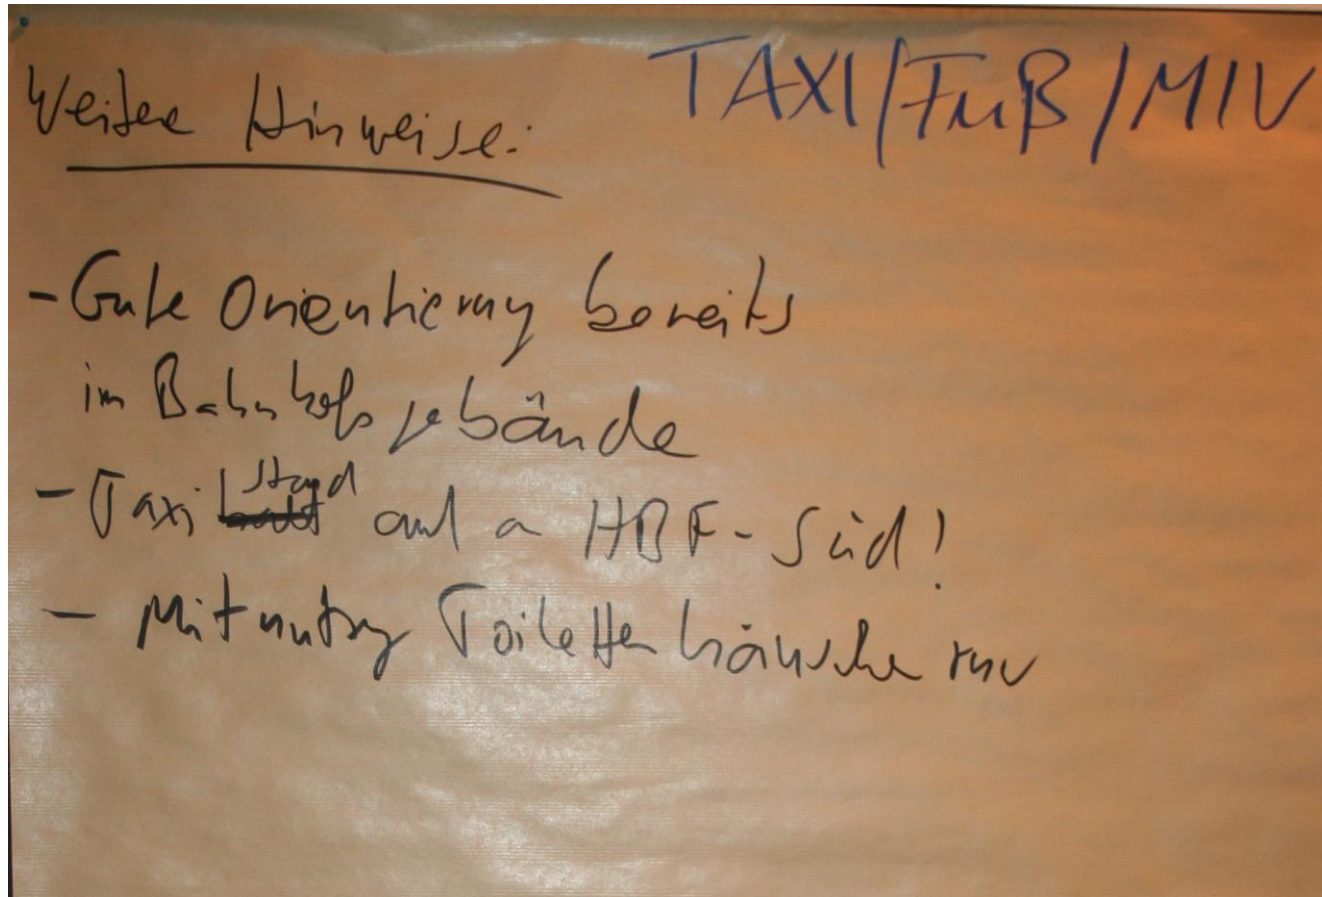 TAXI/FUß/MIV
Weitere Hinweise:
- Gute Orientierung bereits
im Bahnhofsgebäude
- Taxistand auch a HBF-Süd!
- Mitnutzung Toilettenhäuschen rnv